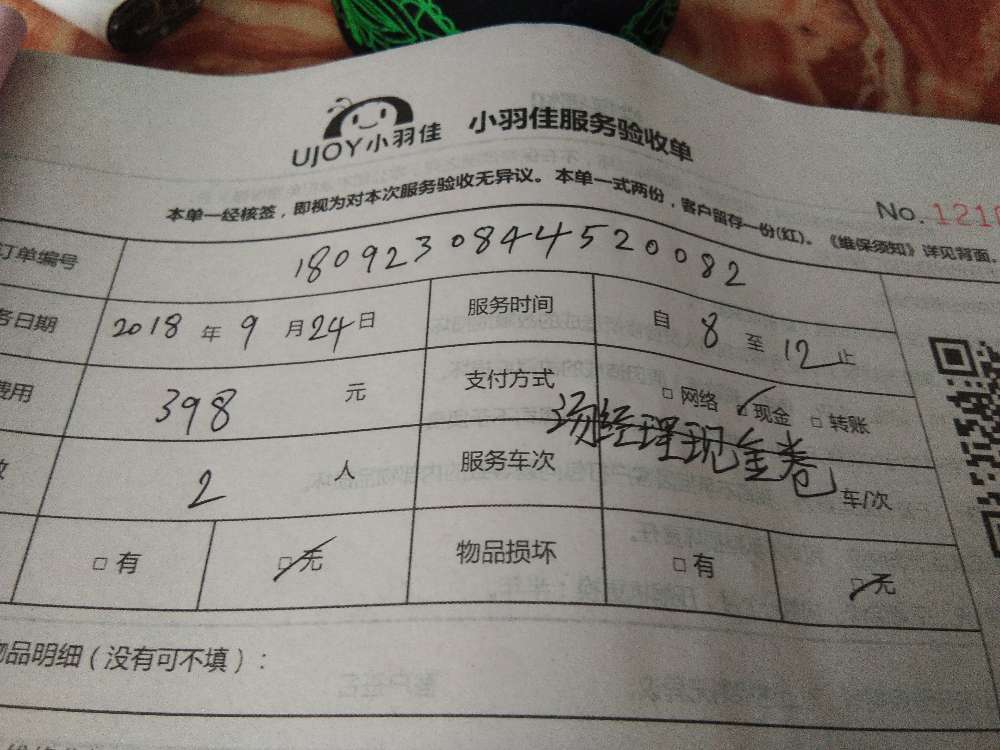 UJOY小羽佳 小羽佳服务验收单
本单一经核签，即视为对本次服务验收无异议。本单一式两份，客户留存一份(红)。《维保须知》详见背面。
No. 121
订单编号 180923084445200082
务日期 2018 年 9 月 24 日 服务时间 自 8 至 12 止
费用 398 元 支付方式 □网络 ☑现金 □转账
2 人 服务车次 车/次
汤经理现金卷
□有 ☑无 物品损坏 □有 ☑无
物品明细（没有可不填）：